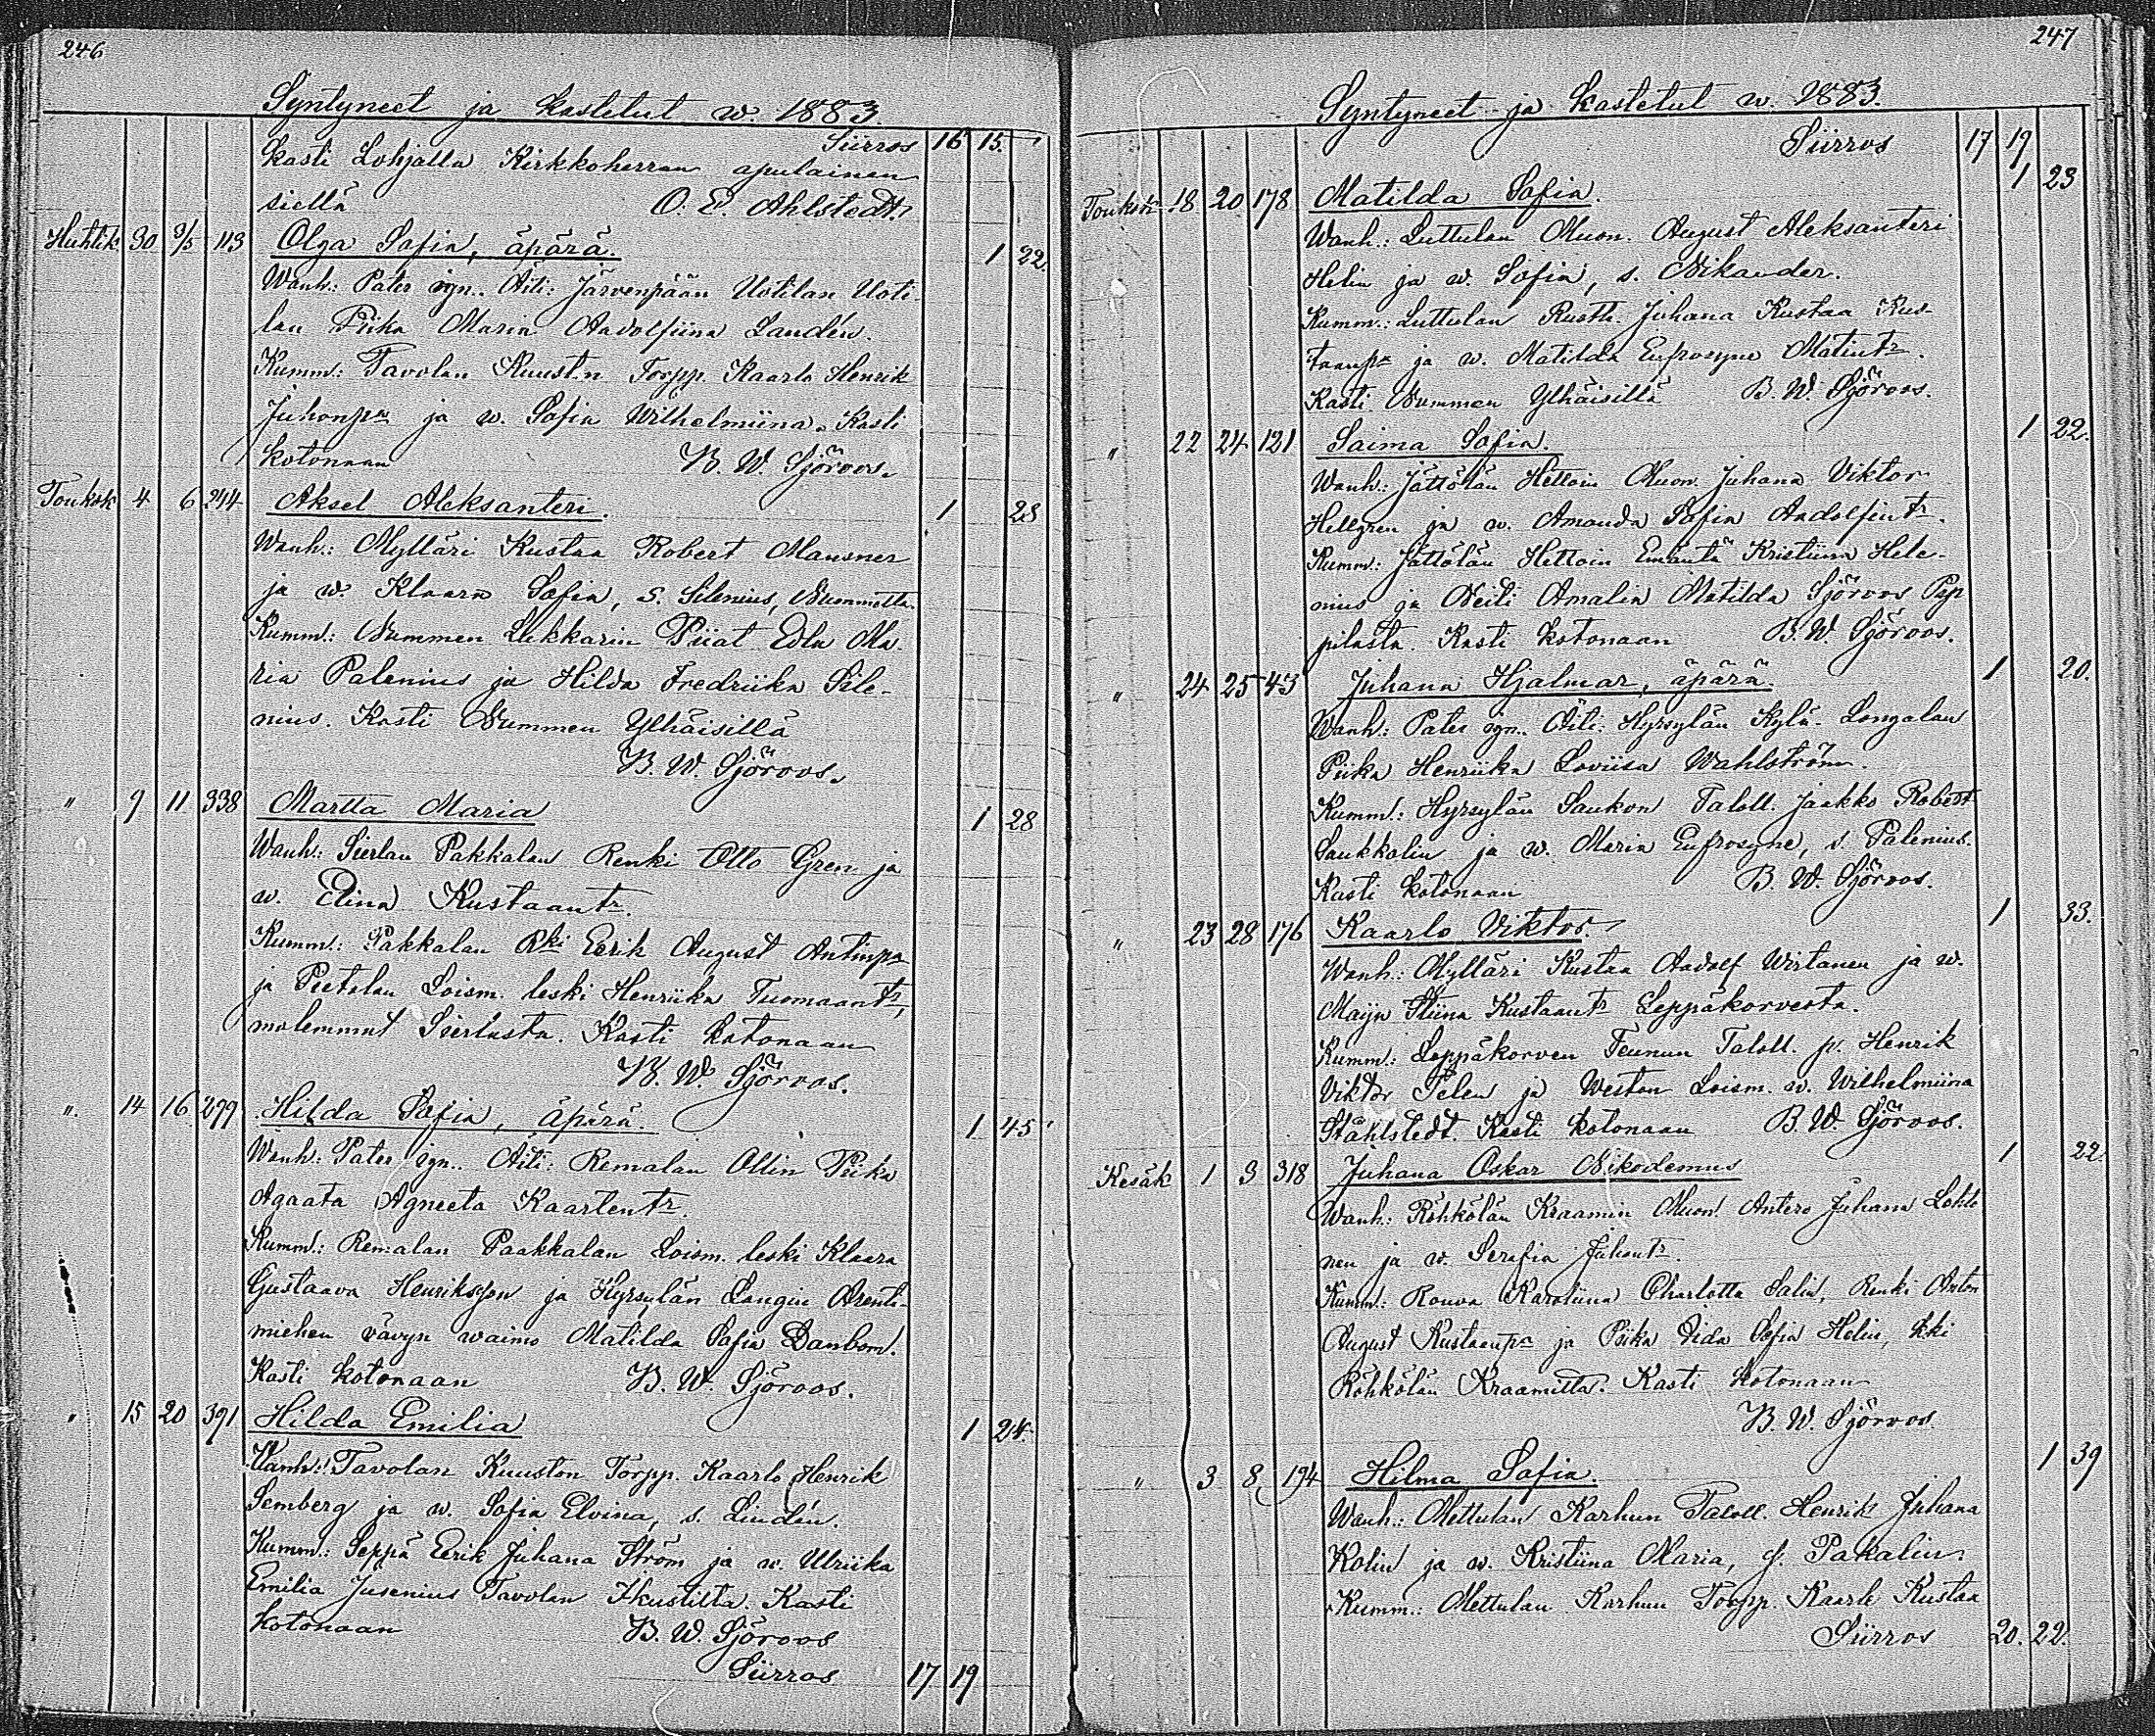 246
Syntyneet ja kastetut w. 1883.
Siirros 16 15.
Kasti Lohjalla Kirkkoherran apulainen
siellä O. E. Ahlstedt.
Huhtik 30 9/5 113 Olga Sofia, äpärä. 1 22.
Wanh: Pater ign. Äiti: Järvenpään Uotilan Uoti-
lan Piika Maria Aadolfiina Landén.
Kumm: Tavolan Kuust.n Torpp. Kaarlo Henrik
Juhonpa ja w. Sofia Wilhelmiina. Kasti
kotonaan B. W. Sjöroos.
Toukok 4 6 244 Aksel Aleksanteri. 1 23
Wanh: Mylläri Kustaa Robert Mausner
ja w. Klaara Sofia, s. Silenius, Nummelta.
Kumm: Nummen Lukkarin Piiat Edla Ma-
ria Palenius ja Hilda Fredriika Sile-
nius. Kasti Nummen Ylhäisillä
B. W. Sjöroos.
" 9 11 338 Martta Maria 1 28
Wanh: Sierlan Pakkalan Renki Otto Gren ja
w. Elina Kustaantr.
Kumm: Pakkalan Rki Eerik August Antinpa
ja Peetelan Loism. leski Henriika Tuomaantr,
molemmat Sierlasta. Kasti kotonaan
B. W. Sjöroos.
" 14 16 299 Hilda Sofia, äpärä. 1 45
Wanh: Pater ign. Äiti: Remalan Ollin Piika
Agaata Agneeta Kaarlentr.
Kumm: Remalan Paakkalan Loism. leski Klaara
Gustaava Henriksson ja Hyrsylän Langin Arenti-
miehen vävyn waimo Matilda Sofia Danbom.
Kasti kotonaan B. W. Sjöroos.
" 15 20 391 Hilda Emilia 1 24.
Wanh: Tavolan Kuuston Torpp. Kaarlo Henrik
Semberg ja w. Sofia Elvina, s. Lindén.
Kumm: Seppä Eerik Juhana Ström ja w. Ulriika
Emilia Jusenius Tavolan Kasti
kotonaan B. W. Sjöroos
Siirros 17 19
247
Syntyneet ja kastetut w. 1883.
Siirros 17 19
Toukok 18 20 178 Matilda Sofia. 1 23
Wanh: Luttulan Muon. August Aleksanteri
Helin ja w. Sofia, s. Nikander.
Kumm: Luttulan Rusth. Juhana Kustaa Kus-
taanpa ja w. Matilda Eufrosyne Matintr.
Kasti Nummen Ylhäisillä B. W. Sjöroos.
" 22 24 121 Saima Sofia. 1 22.
Wanh: Jättölän Hettoin Muon. Juhana Viktor
Hellgren ja w. Amanda Sofia Aadolfintr.
Kumm: Jättölän Hettoin Emäntä Kristiina Hele-
nius ja Neiti Amalia Matilda Sjöroos Pap-
pilasta. Kasti kotonaan B. W. Sjöroos.
" 24 25 43 Juhana Hjalmar, äpärä. 1 20.
Wanh: Pater ign. Äiti: Hyrsylän Kylä-Longalan
Piika Henriika Loviisa Wahlström.
Kumm: Hyrsylän Saukon Taloll. Jaakko Robert
Saukkolin ja w. Maria Eufrosyne, s. Palenius.
Kasti kotonaan B. W. Sjöroos.
" 23 28 176 Kaarlo Viktor. 1 33.
Wanh: Mylläri Kustaa Aadolf Wirtanen ja w.
Maija Stiina Kustaantr Leppäkorvesta.
Kumm: Leppäkorven Teunun Taloll. p. Henrik
Viktor Telen ja Westan Loism. w. Wilhelmiina
Ståhlstedt. Kasti kotonaan B. W. Sjöroos.
Kesäk 1 3 318 Juhana Oskar Nikodemus 1 22.
Wanh: Röhkölän Kraamin Muon. Antero Juhana Lehto-
nen ja w. Serafia Juhantr.
Kumm: Rouva Karoliina Charlotta Salin, Renki Anton
August Kustaanpa ja Piika Iida Sofia Helin, kki
Röhkölän Kraamilta. Kasti kotonaan
B. W. Sjöroos
" 3 8 194 Hilma Sofia. 1 39
Wanh: Mettulan Karhun Taloll. Henrik Juhana
Kolin ja w. Kristiina Maria, s. Pakalin.
Kumm: Mettulan Karhun Torpp. Kaarle Kustaa
Siirros 20. 22.